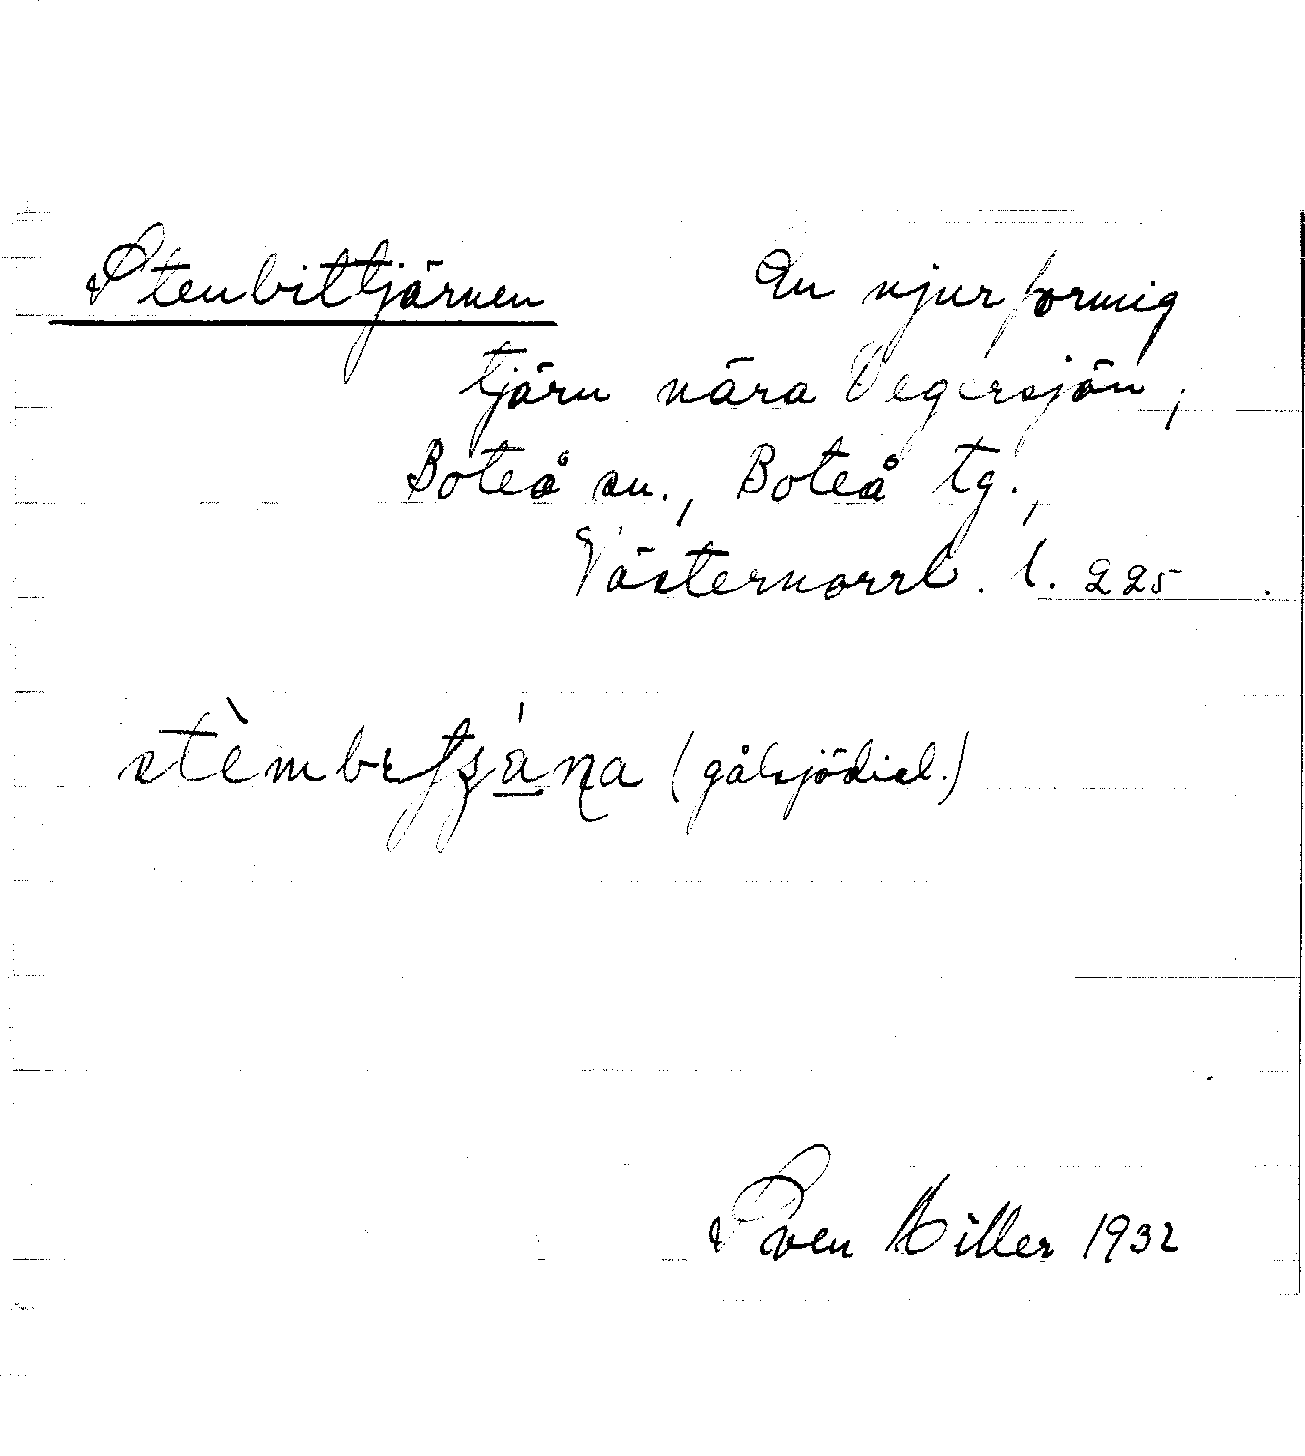 Stenbittjärnen En njurformig
tjärn nära Vegersjön,
Boteå sn., Boteå tg.,
Västernorrl. l. 225
(gålsjödial.)
Sven Hiller 1932